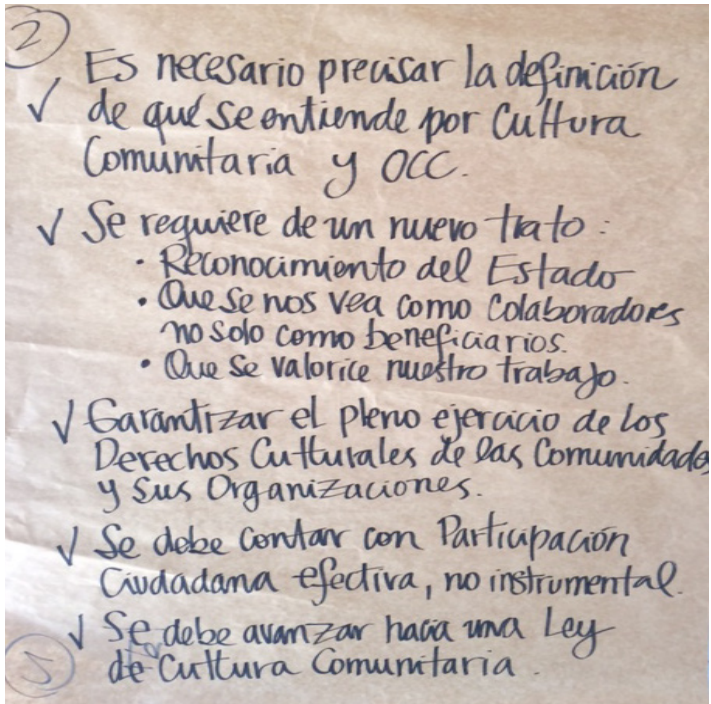 2
Es necesario precisar la definición
✓ de qué se entiende por Cultura
Comunitaria y OCC.
✓ Se requiere de un nuevo trato:
• Reconocimiento del Estado
• Que se nos vea como colaboradores
no solo como beneficiarios.
• Que se valorice nuestro trabajo.
✓ Garantizar el pleno ejercicio de los
Derechos Culturales de las Comunidades
y sus Organizaciones.
✓ Se debe contar con Participación
Ciudadana efectiva, no instrumental.
✓ Se debe avanzar hacia una Ley
de Cultura Comunitaria.